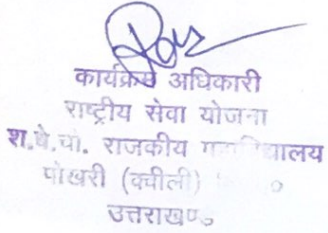 कार्यक्रम अधिकारी
राष्ट्रीय सेवा योजना
श.बे.चो. राजकीय महाविद्यालय
पोखरी (क्वीली)
उत्तराखण्ड